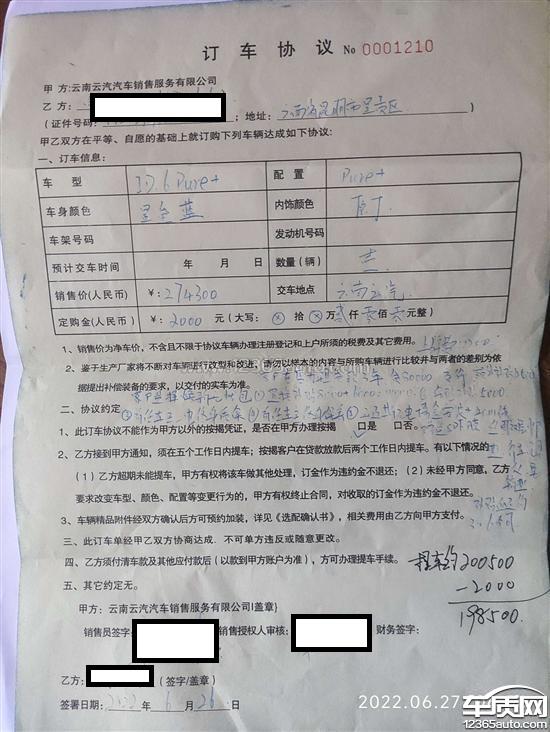 订 车 协 议 No 0001210
甲 方:云南云汽汽车销售服务有限公司
乙 方:
(证件号码: ; 地址: 云南省昆明市呈贡区 )
甲乙双方在平等、自愿的基础上就订购下列车辆达成如下协议:
一、订车信息:
车 型 Pure+ 配 置 Pure+
车身颜色 蓝 内饰颜色
车架号码 发动机号码
预计交车时间 年 月 日 数量(辆) 壹
销售价(人民币) ¥: 274300 交车地点 云南云汽
定购金(人民币) ¥: 2000 元(大写: ⊗ 拾 ⊗ 万 贰 仟 零 佰 零 元整)
1、销售价为净车价,不含且不限于协议车辆办理注册登记和上户所须的税费及其它费用。
2、鉴于生产厂家将不断对车辆进行改型和改进,请勿以样本的内容与所购车辆进行比较并与两者的差别为依
据提出补偿装备的要求,以交付的实车为准。
二、协议约定
1、此订车协议不能作为甲方以外的按揭凭证,是否在甲方办理按揭 口是 口否。
2、乙方接到甲方通知,须在五个工作日内提车;按揭客户在贷款放款后两个工作日内提车。有以下情况的
(1)乙方超期未能提车,甲方有权将该车做其他处理,订金作为违约金不退还;(2)未经甲方同意,乙方
要求改变车型、颜色、配置等变更行为的,甲方有权终止合同,对收取的订金作为违约金不退还。
3、车辆精品附件经双方确认后方可预约加装,详见《选配确认书》,相关费用由乙方向甲方支付。
三、此订车单经甲乙双方协商达成,不可单方违反或随意更改。
四、乙方须付清车款及其他应付款后(以款到甲方账户为准),方可办理提车手续。
提车约200500
-2000
198500.
五、其它约定无。
甲方:云南云汽汽车销售服务有限公司{盖章}
销售员签字: 销售授权人审核: 财务签字:
乙方: (签字/盖章)
签署日期: 2022 年 6 月 26 日
2022.06.27
车质网
12365auto.com